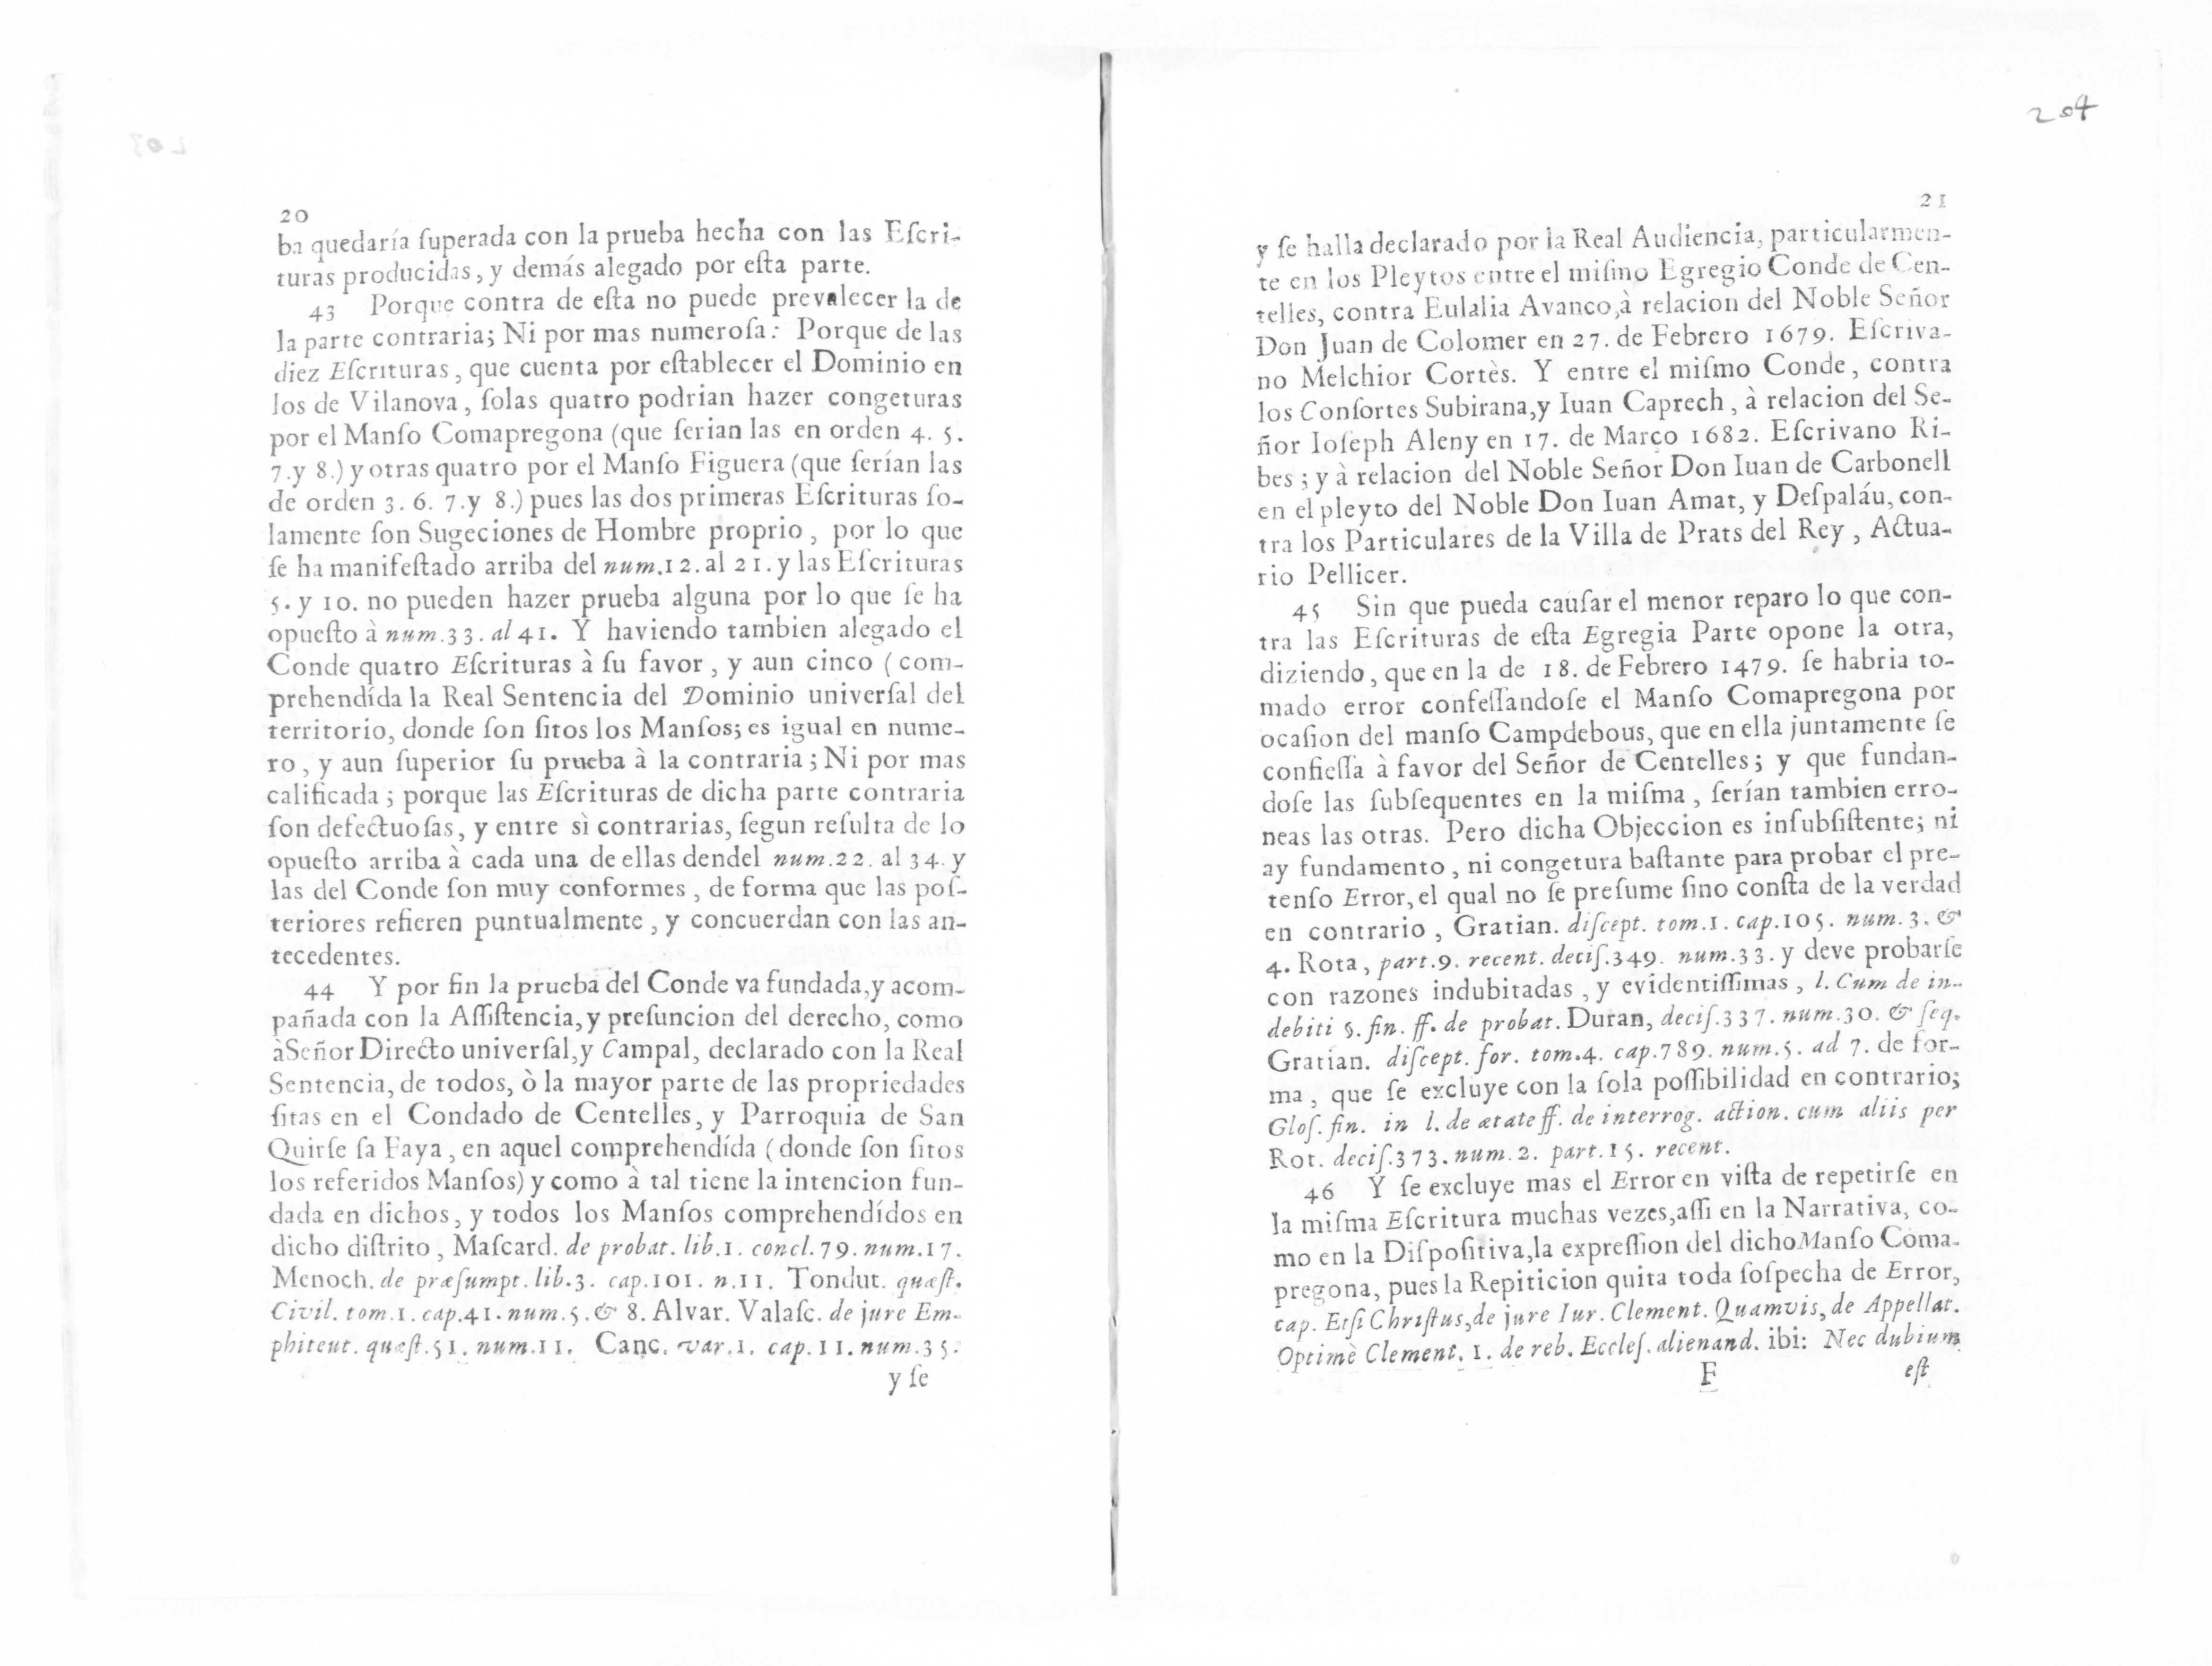 20
ba quedaría ſuperada con la prueba hecha con las Eſcri-
turas producidas, y demás alegado por eſta parte.
43 Porque contra de eſta no puede prevalecer la de
la parte contraria; Ni por mas numeroſa: Porque de las
diez Eſcrituras, que cuenta por eſtablecer el Dominio en
los de Vilanova, ſolas quatro podrian hazer congeturas
por el Manſo Comapregona (que ſerian las en orden 4. 5.
7.y 8.) y otras quatro por el Manſo Figuera (que ſerían las
de orden 3. 6. 7.y 8.) pues las dos primeras Eſcrituras ſo-
lamente ſon Sugeciones de Hombre proprio, por lo que
ſe ha manifeſtado arriba del num.12. al 21. y las Eſcrituras
5. y 10. no pueden hazer prueba alguna por lo que ſe ha
opueſto à num.33. al 41. Y haviendo tambien alegado el
Conde quatro Eſcrituras à ſu favor, y aun cinco (com-
prehendída la Real Sentencia del Dominio univerſal del
territorio, donde ſon ſitos los Manſos; es igual en nume-
ro, y aun ſuperior ſu prueba à la contraria; Ni por mas
calificada; porque las Eſcrituras de dicha parte contraria
ſon defectuoſas, y entre sì contrarias, ſegun reſulta de lo
opueſto arriba à cada una de ellas dendel num.22. al 34. y
las del Conde ſon muy conformes, de forma que las poſ-
teriores refieren puntualmente, y concuerdan con las an-
tecedentes.
44 Y por fin la prueba del Conde va fundada,y acom-
pañada con la Aſſiſtencia,y preſuncion del derecho, como
àSeñor Directo univerſal,y Campal, declarado con la Real
Sentencia, de todos, ò la mayor parte de las propriedades
ſitas en el Condado de Centelles, y Parroquia de San
Quirſe ſa Faya, en aquel comprehendída (donde ſon ſitos
los referidos Manſos) y como à tal tiene la intencion fun-
dada en dichos, y todos los Manſos comprehendídos en
dicho diſtrito, Maſcard. de probat. lib.1. concl.79. num.17.
Menoch. de præſumpt. lib.3. cap.101. n.11. Tondut. quæſt.
Civil. tom.1. cap.41. num.5. & 8. Alvar. Valaſc. de jure Em-
phiteut. quæſt.51. num.11. Canc. var.1. cap.11. num.35.
y ſe
204
21
y ſe halla declarado por la Real Audiencia, particularmen-
te en los Pleytos entre el miſmo Egregio Conde de Cen-
telles, contra Eulalia Avanco,à relacion del Noble Señor
Don Juan de Colomer en 27. de Febrero 1679. Eſcriva-
no Melchior Cortès. Y entre el miſmo Conde, contra
los Conſortes Subirana,y Iuan Caprech, à relacion del Se-
ñor Ioſeph Aleny en 17. de Março 1682. Eſcrivano Ri-
bes; y à relacion del Noble Señor Don Iuan de Carbonell
en el pleyto del Noble Don Iuan Amat, y Deſpaláu, con-
tra los Particulares de la Villa de Prats del Rey, Actua-
rio Pellicer.
45 Sin que pueda cauſar el menor reparo lo que con-
tra las Eſcrituras de eſta Egregia Parte opone la otra,
diziendo, que en la de 18. de Febrero 1479. ſe habria to-
mado error confeſſandoſe el Manſo Comapregona por
ocaſion del manſo Campdebous, que en ella juntamente ſe
confieſſa à favor del Señor de Centelles; y que fundan-
doſe las ſubſequentes en la miſma, ſerían tambien erro-
neas las otras. Pero dicha Objeccion es inſubſiſtente; ni
ay fundamento, ni congetura baſtante para probar el pre-
tenſo Error, el qual no ſe preſume ſino conſta de la verdad
en contrario, Gratian. diſcept. tom.1. cap.105. num.3. &
4. Rota, part.9. recent. deciſ.349. num.33. y deve probarſe
con razones indubitadas, y evidentiſſimas, l. Cum de in-
debiti §. fin. ff. de probat. Duran, deciſ.337. num.30. & ſeq.
Gratian. diſcept. for. tom.4. cap.789. num.5. ad 7. de for-
ma, que ſe excluye con la ſola poſſibilidad en contrario;
Gloſ. fin. in l. de ætate ff. de interrog. action. cum aliis per
Rot. deciſ.373. num.2. part.15. recent.
46 Y ſe excluye mas el Error en viſta de repetirſe en
la miſma Eſcritura muchas vezes,aſſi en la Narrativa, co-
mo en la Diſpoſitiva,la expreſſion del dicho Manſo Coma-
pregona, pues la Repiticion quita toda ſoſpecha de Error,
cap. Etſi Chriſtus,de jure Iur. Clement. Quamvis, de Appellat.
Optimè Clement. 1. de reb. Eccleſ. alienand. ibi: Nec dubium
F eſt